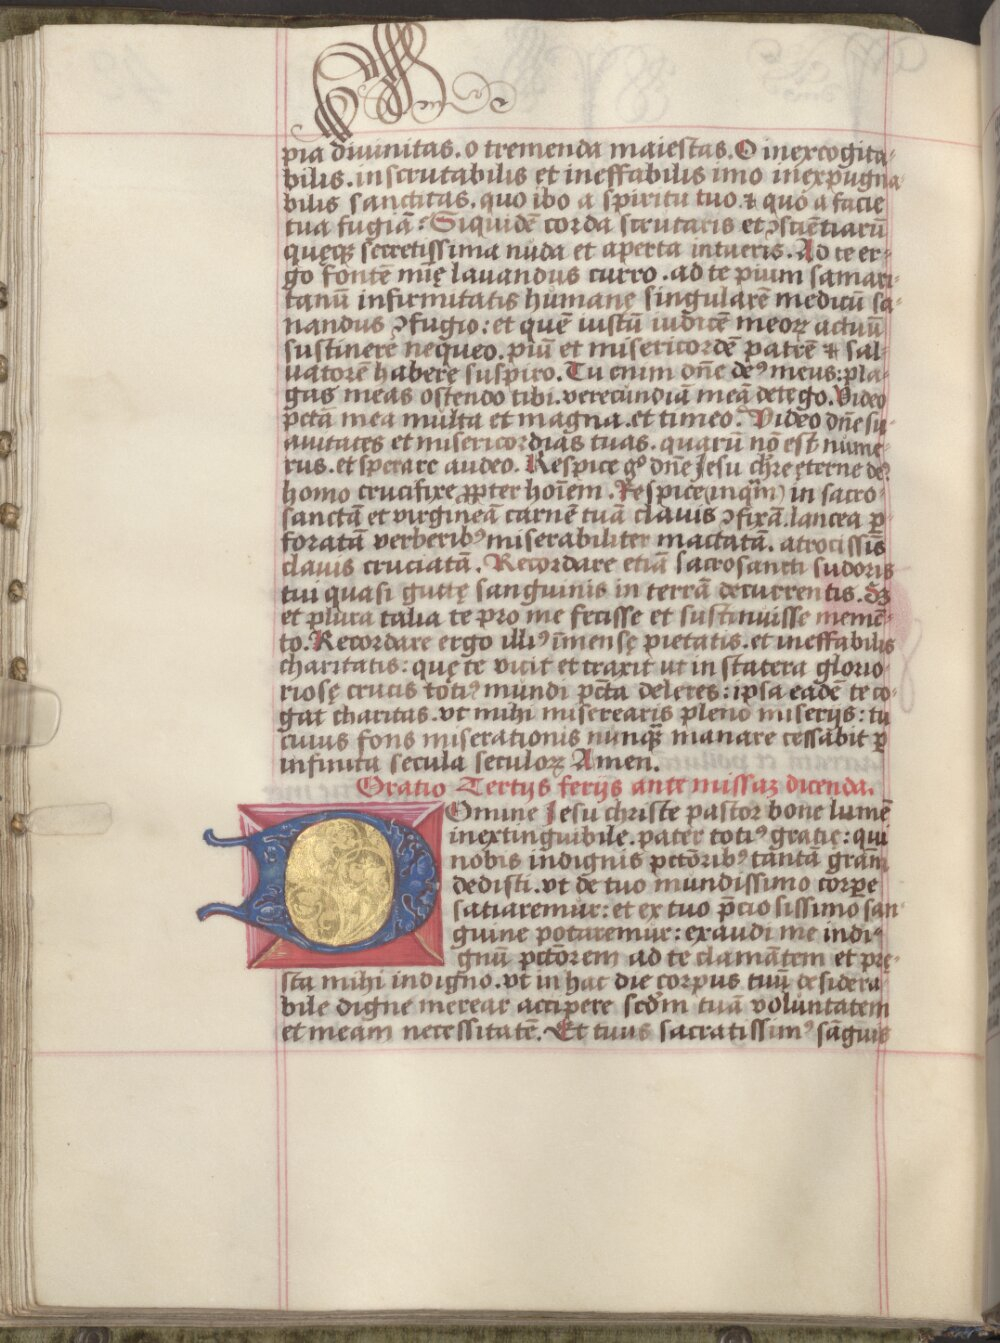 pia diuinitas. o tremenda maiestas. O inexcogita-
bilis. inscrutabilis et ineffabilis imo inexpugna-
bilis sanctitas. quo ibo a spiritu tuo. & quo a facie
tua fugiā? Siquidē corda scrutaris et ꝯsciētiarū
queqꝫ secretissima nuda et aperta intueris. Ad te er-
go fontē mię lauandus curro. ad te pium samari-
tanū infirmitatis humanę singularē medicū sa-
nandus ꝯfugio: et quē iustū iudicē meoꝝ actuū
sustinere nequeo. piū et misericordē patrē & sal-
uatorē habere suspiro. Tu enim dn̄e deꝰ meus: pla-
gas meas ostendo tibi. verecundiā meā detego. Video
pctā mea multa et magna. et timeo. Video dn̄e su-
auitates et misericordiās tuas. quarū nō est nume-
rus. et sperare audeo. Respice gͦ dn̄e Jesu chr̄e ęterne deꝰ
homo crucifixe ꝓpter hoīem. Respice (inqm̄) in sacro-
sanctā et virgineā carnē tuā clauis ꝯfixā. lancea ꝑ-
foratā verberibꝰ miserabiliter mactatā. atrocissis̄
clauis cruciatā. Recordare etiā sacrosancti sudoris
tui quasi guttę sanguinis in terrā decurrentis. Sꝫ
et plura talia te pro me fecisse et sustinuisse memē-
to. Recordare ergo illiꝰ īmensę pietatis. et ineffabilis
charitatis: quę te vicit et traxit ut in statera glorio-
riosę crucis totiꝰ mundi pctā deleres: ipsa eadē te co-
gat charitas. vt mihi miserearis pleno miserijs: tu
cuius fons miserationis nunqꝫ manare cessabit ꝑ
infinita secula seculoꝝ Amen.
Oratio Tertijs ferijs ante missaꝫ dicenda.
Domine Jesu christe pastor bone lumē
inextinguibile. pater totiꝰ gratię: qui
nobis indignis pctōribꝰ tantā grām
dedisti. vt de tuo mundissimo corpe
satiaremur: et ex tuo p̄cio sissimo san-
guine potaremur: exaudi me indi-
gnū pctōrem ad te clamāntem et prę-
sta mihi indigno. vt in hac die corpus tuū desidera-
bile digne merear accipere scdm̄ tuā voluntatem
et meam necessitatē. Et tuus sacratissimꝰ sāguis